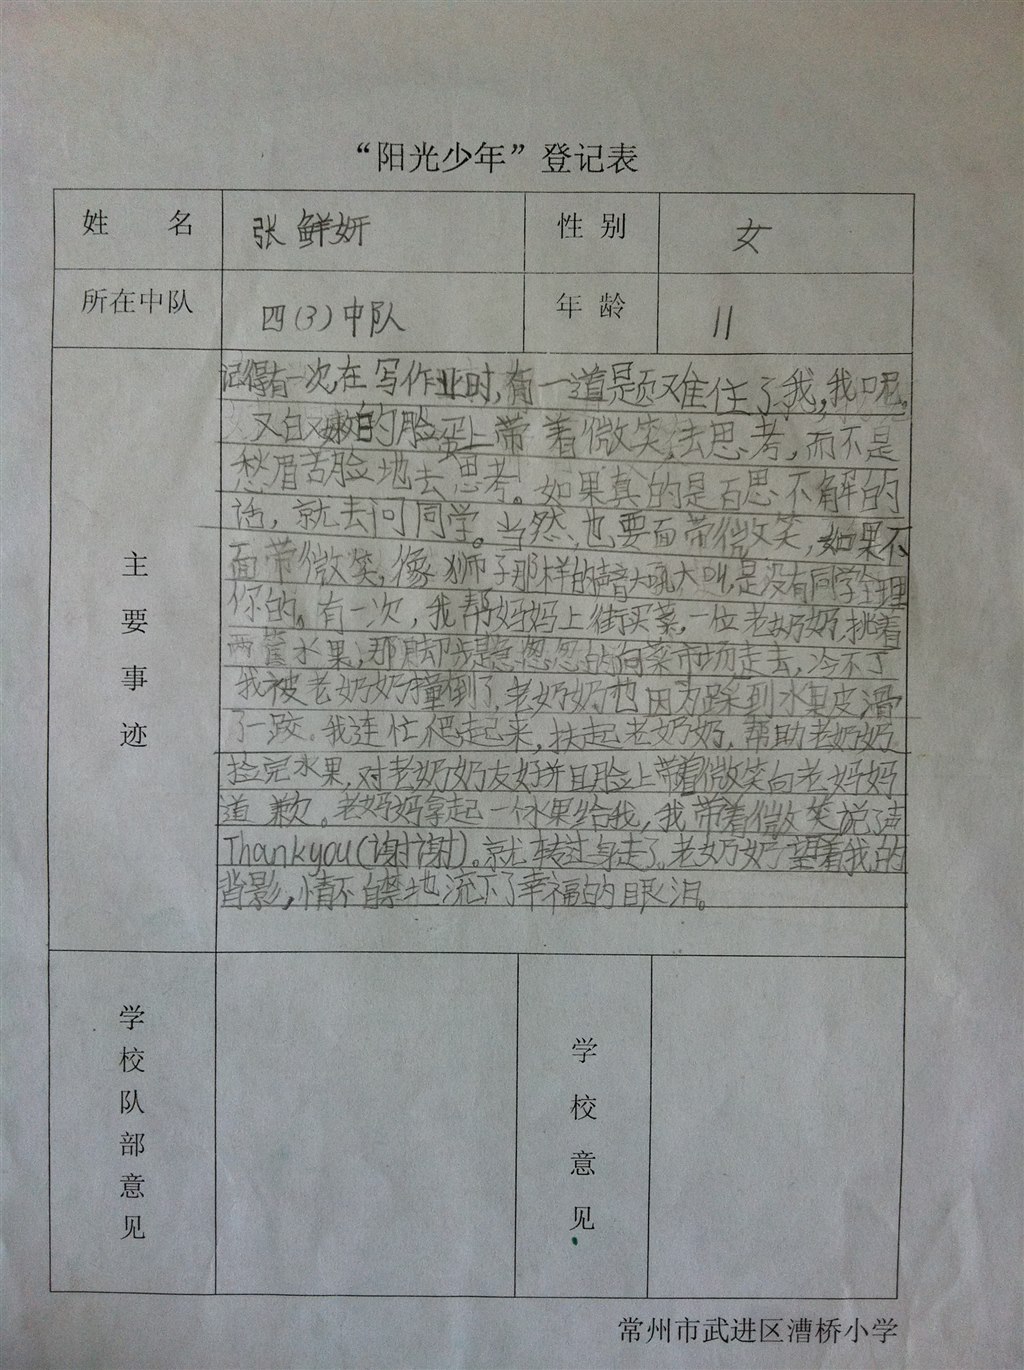 “阳光少年”登记表
姓 名 张鲜妍 性别 女
所在中队 四(3)中队 年龄 11
主要事迹
记得有一次在写作业时,有一道题难住了我,我呢。
又白又嫩的脸蛋上带着微笑,去思考,而不是
愁眉苦脸地去思考。如果真的是百思不解的
话,就去问同学。当然,也要面带微笑,如果不
面带微笑,像狮子那样的声音大吼大叫,是没有同学会理
你的。有一次,我帮妈妈上街买菜,一位老奶奶,挑着
两筐水果,那脚步是急忽忽的向菜市场走去,冷不丁
我被老奶奶撞倒了,老奶奶也因为踩到水果皮滑
了一跤。我连忙爬起来,扶起老奶奶,帮助老奶奶
捡完水果,对老奶奶友好并且脸上带着微笑向老妈妈
道歉。老妈妈拿起一个水果给我,我带着微笑说了声
Thankyou(谢谢)。就转过身走了,老奶奶望着我的
背影,情不自禁地流下了幸福的眼泪。
学校队部意见 学校意见
常州市武进区漕桥小学